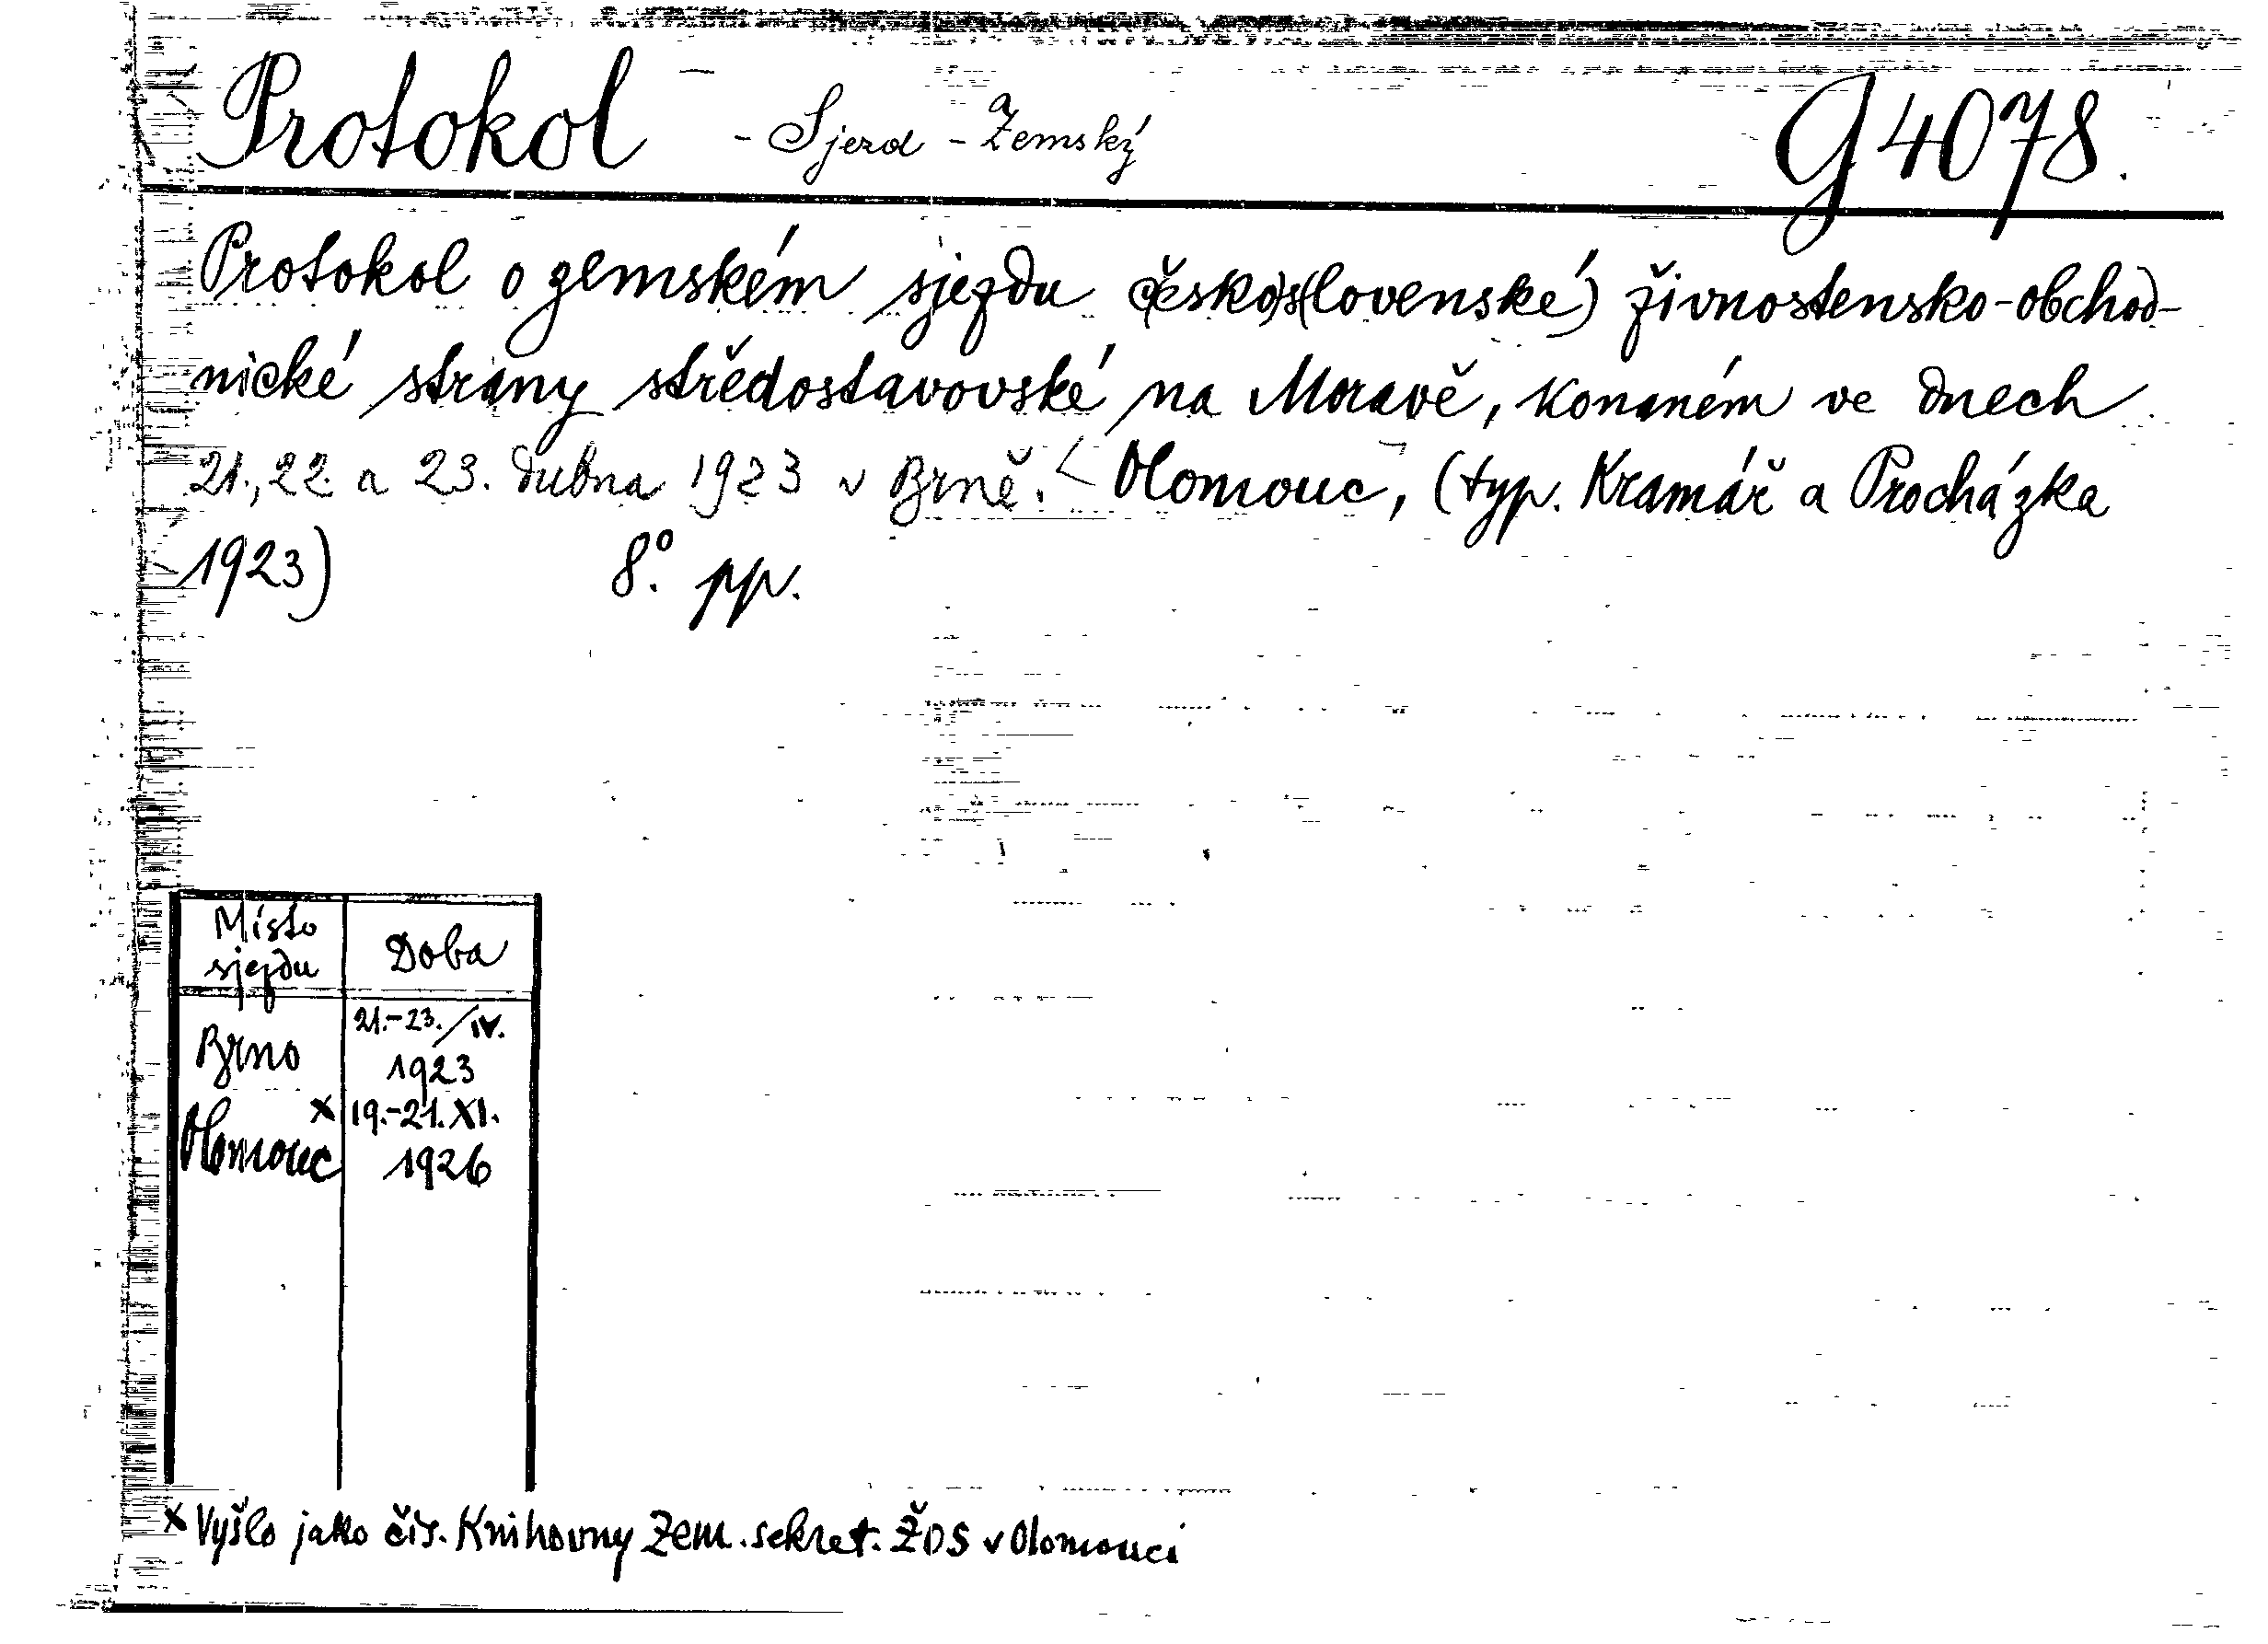 Protokol - Sjezd - Zemský G 4078.
Protokol o zemském sjezdu (česko)s(lovenské) živnostensko-obchod-
nické strany středostavovské na Moravě, konaném ve dnech
21., 22. a 23. dubna 1923 v Brně. < Olomouc, (typ. Kramář a Procházka
1923) 8.° pp.
Místo sjezdu Doba
Brno 21.-23./IV. 1923
Olomouc x 19.-21. XI. 1926
x Vyšlo jako čís. Knihovny Zem. sekret. ŽOS v Olomouci